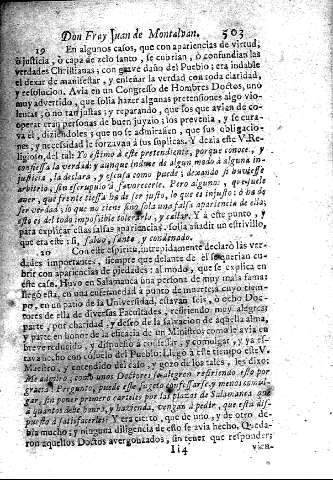 Don Fray Juan de Montalvan. 503
19 En algunos casos, que con apariencias de virtud,
ò justicia, ò capa de zelo santo, se cubrian, ò confundian las
verdades Christianas; con grave daño del Pueblo; era indable
el dexar de manifestar, y enseñar la verdad con toda claridad,
y resolucion. Avia en un Congresso de Hombres Doctos, uno
muy advertido, que solia hazer algunas pretensiones algo vio-
lentas; ò no tan justas; y reparando, que los que avian de co-
operar eran personas de buen juyzio; los prevenia, y se cura-
va el, diziendoles; que no se admirassen, que sus obligacio-
nes, y necessidad le forzavan à sus suplicas. Y dezia este V. Re-
ligioso, del tal: Yo estimo à este pretendiente, porque conoce, y
confiessa la verdad; y aunque incline de algun modo à alguna in-
justicia, la declara, y escusa como puede; dexando si huviesse
arbitrio, sin escrupulo à favorecerle. Pero algunos: que
aver, que frente tiessa ha de ser justo, lo que es injusto: ò ha de
ser verdad, lo que no tiene sino sola una falsa apariencia de ella;
esto es del todo impossible tolerarlo, y callar. Y à este punto, y
para explicar estas falsas apariencias, solia añadir un estrivillo,
que era este: si, salvo, santo, y condenado.
20 Con este espiritu, intrepidamente declarò las ver-
dades importantes, siempre que delante de èl se querian cu-
brir con apariencias de piedades: al modo, que se explica en
este caso. Huvo en Salamanca una persona de muy mala fama:
llegò esta, en una enfermedad à punto de muerte; à cuyo tiem-
po, en un patio de la Universidad, estavan seis, ò ocho Doc-
tores de ella de diversas Facultades, refiriendo muy alegres
parte, por charidad, y deseo de la salvacion de aquella alma,
y parte en honor de la eficacia de un Ministro: como le avia en
breve reducido, y dispuesto à confessar, y comulgar, y ya es-
tava hecho con consuelo del Pueblo. Llegò à este tiempo este V.
Maestro, y entendido del caso, y gozo de los tales, les dixo:
Me admiro, como unos Doctores se alegren refiriendo esto por
gracia! Pregunto, puede este sugeto confessarse, y menos comul-
gar, sin poner primero carteles por las plazas de Salamanca que
à quantos debe honra, y hazienda, vengan à pedir, que està dis-
puesto à satisfacerles? Y era cierto, que de uno, y de otro de-
bia mucho; y ninguna diligencia de esso se avia hecho. Queda-
ron aquellos Doctos avergonzados, sin tener que responder;
Ii4